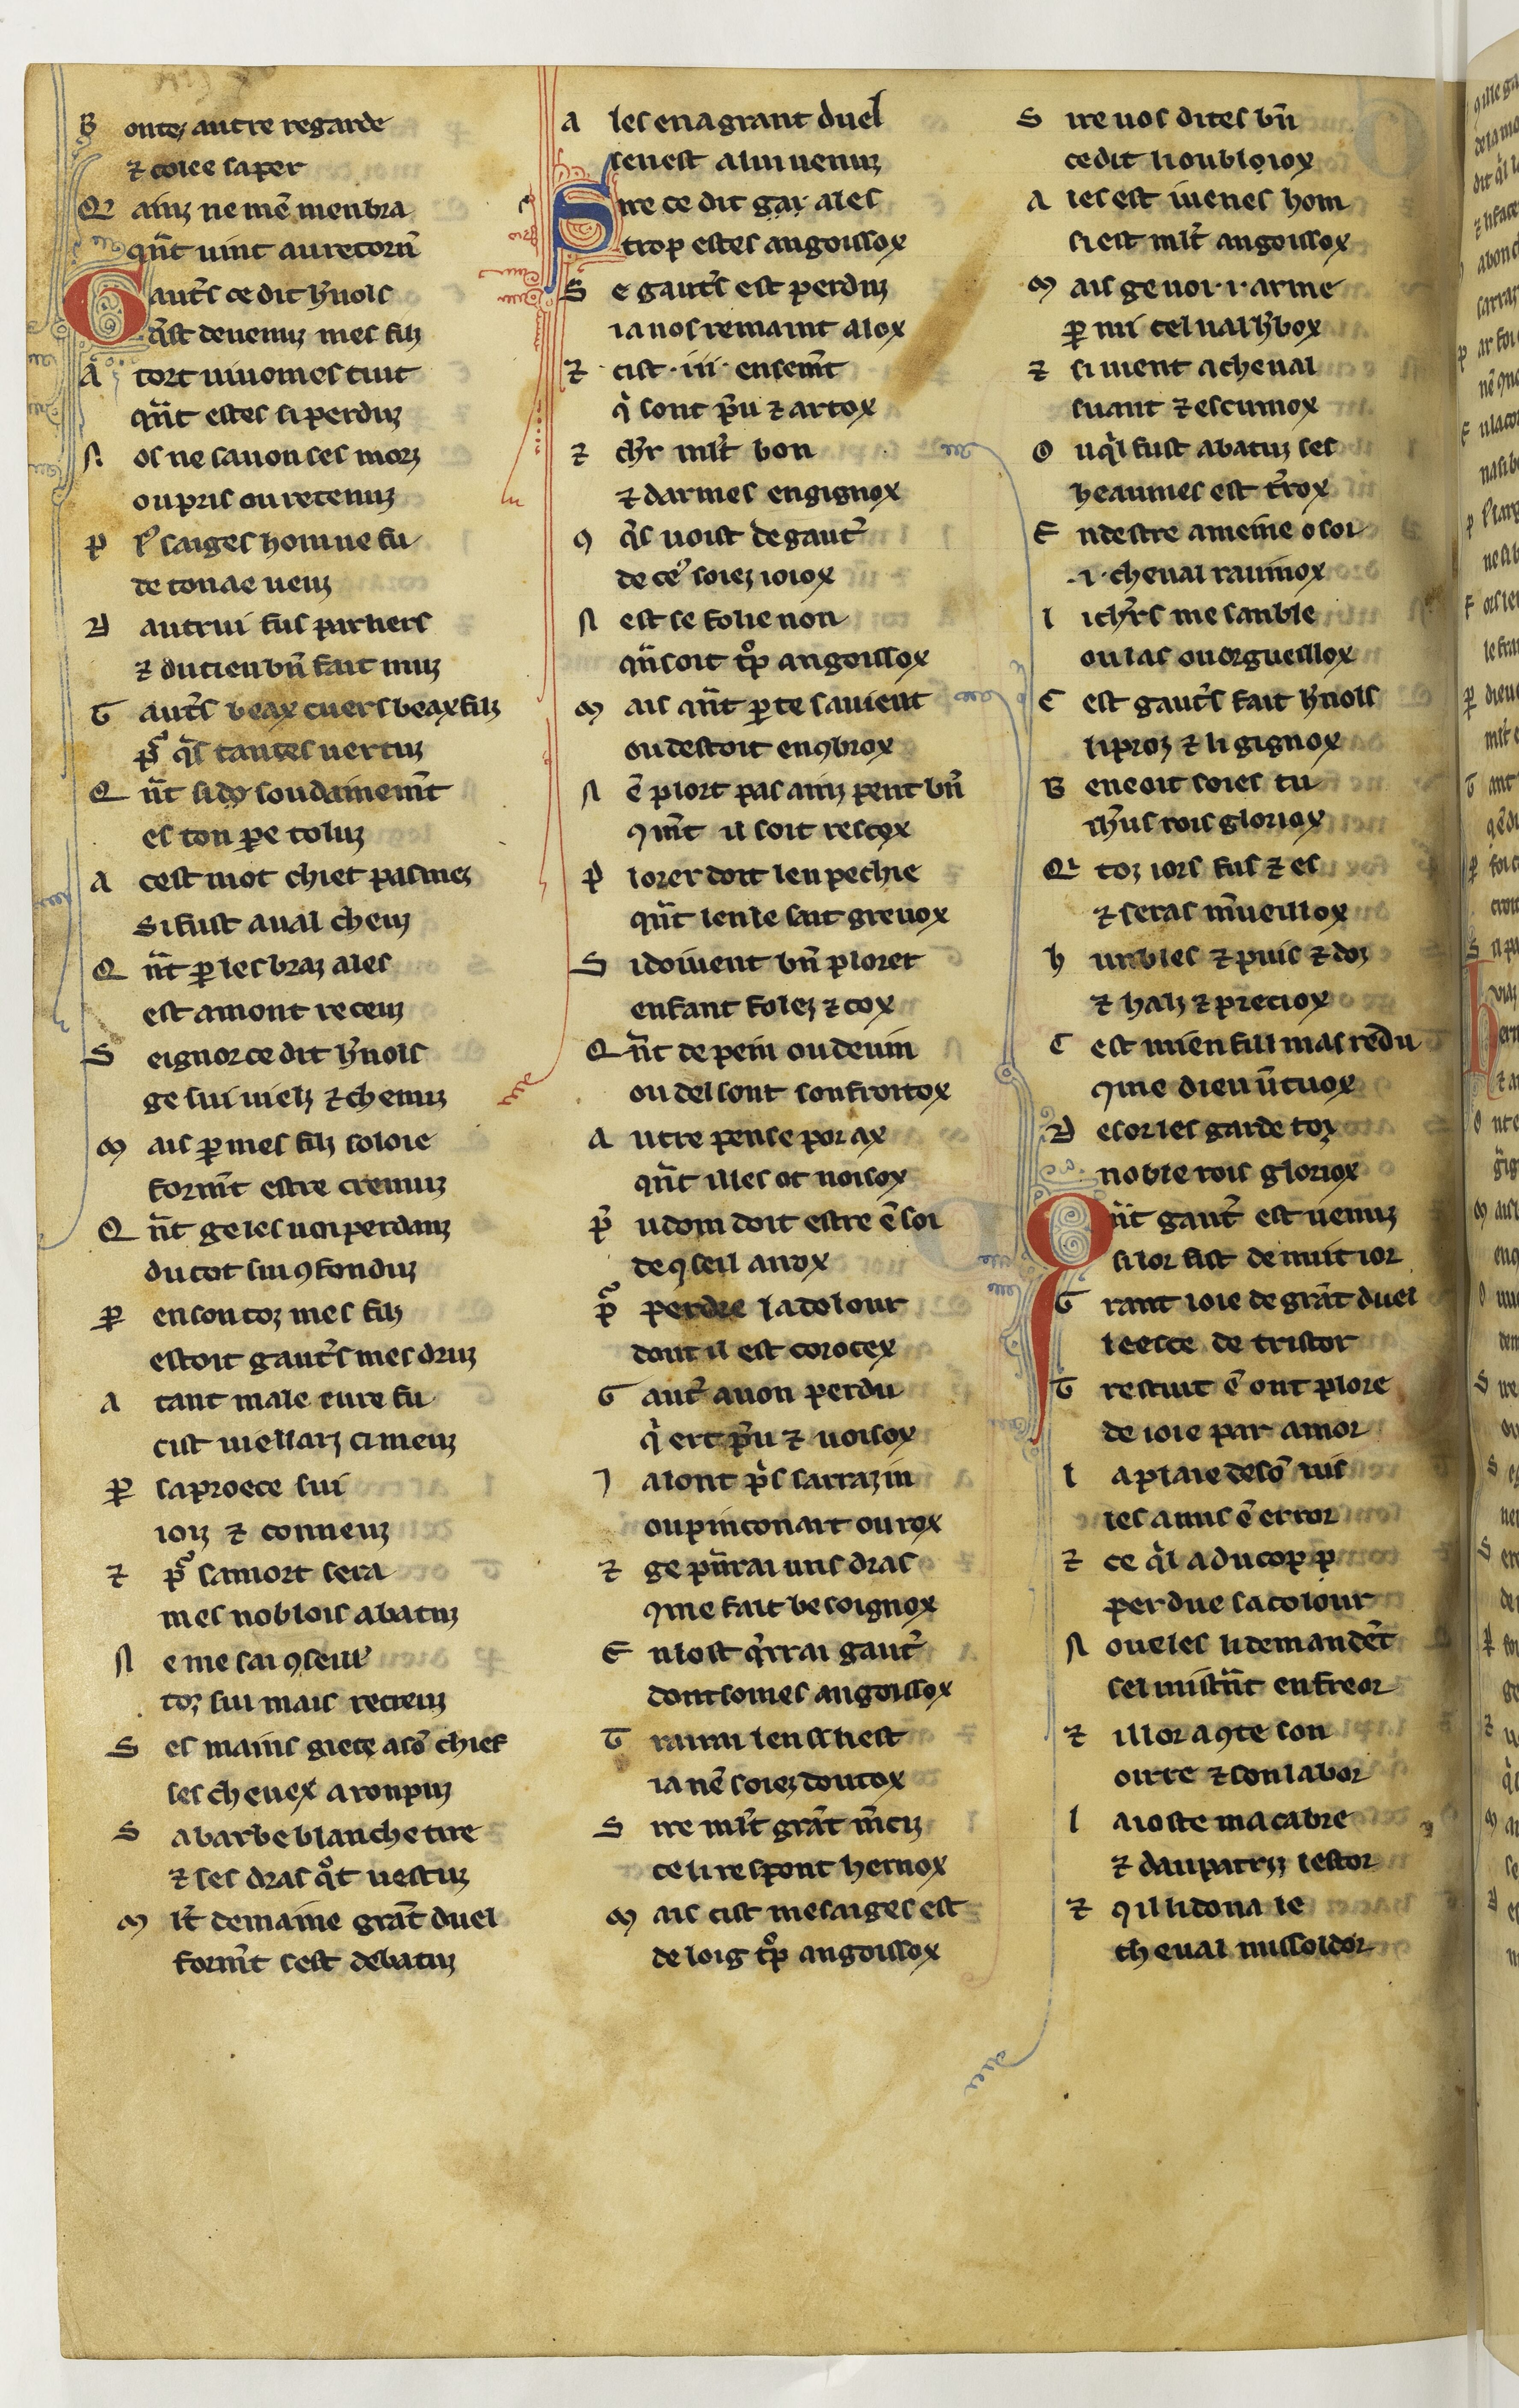 B ontez autre regarde
⁊ colee saper
Qͥ ainz ne mē menbra
qn̄t uint au retorn̄
Gaut̄s ce dit h̾nois
q̄st deuenuz mes filz
A tort uiuomes tuit
qn̄t estes si perduz
N os ne sauon ses morz
ou pris ou retenuz
P lꝰ saiges hom ne fu
de ton ae ueuz
D autrui fus parliers
⁊ du tien bn̄ fait muz
G aut̄s beax cuers beax filz
p̄ q̄ls tantes uertuz
Q n̄t si dꝯ soudainem̄t
es ton ꝑe toluz
A cest mot chiet pasmez
si fust aual cheuz
Q n̄t ꝑ les braz ales
est amont receuz
S eignor ce dit h̾nois
ge sui uielz ⁊ chenuz
M ais ꝑ mes filz soloie
form̄t estre cremuz
Q n̄t ge les uoi perdanz
du tot sui ꝯfonduz
P en son toz mes filz
estoit gaut̄s mes druz
A tant male eure fu
cist uiellarz ci meuz
ꝑ sa proece sui
ioiz ⁊ conneuz
⁊ p̄ sa mort sera
mes noblois abatuz
N e me sai ꝯseill̾
toz sui mais recreuz
S es mains giete a sō chief
ses cheuex a ronpuz
S a barbe blanche tire
⁊ ses dras qͦt uestuz
M lt̄ demaine grāt duel
form̄t sest debatuz
A les en a grant duel
sen est a lui uenuz
Sire ce dit gaẏ ales
trop estes angoissox
S e gaut̄s est perduz
ia uos remaint alox
⁊ cist ·iii· ensem̄t
qͥ sont p̄u ⁊ artox
⁊ ch̾r mlt̄ bon
⁊ darmes engignox
Q q̄ls uoist de gaut̄
de ceꝰ soiez ioiox
N est se folie non
qn̄ soit tͦp angoissox
M ais qn̄t ꝑ te sauient
ou destoit enꝯbrox
N ē plort pas ainz pent bn̄
ꝯm̄t il soit rescox
P lorer doit len pechie
qn̄t len le sait greuox
S i doiuent bn̄ plorer
enfant folez ⁊ cox
Q n̄t de pein ou de uin
ou del sont sonfroitox
A utre pense por ax
qn̄t illes ot noisox
P̄ udom doit estre ē soi
de ꝯseil auox
P̄ perdre la dolour
dont il est corocex
G aut̄ auon perdu
qͥ ert p̄u ⁊ uoisox
I a lont p̄s sarrazin
ou pinconart ou rox
⁊ ge pn̄rai uns dras
ꝯme fait besoignox
E n lost q̄rrai gaut̄
dont somes angoissox
T raurai lensl hest
ia nē soiez doutox
S ire mlt̄ grāt m̄ciz
ce li respont hernox
M ais cist mesaiges est
de loig tͦp angoissox
S ire uos dites bn̄
ce dit li oublọiox
A ies est iuenes hom
si est mlt̄ angoissox
M ais ge uoi ·i· arme
ꝑ mi cel ual h̾box
⁊ si uient a cheual
suant ⁊ escumox
O uq̄l fust abatuz ses
heaumes est t̄rox
E n destre ameine o soi
·i· cheual rauinox
L i ch̾rs me sanble
ou las ou orgueillox
C est gaut̄s fait h̾nois
li proz ⁊ li gignox
B eneoit soies tu
ih̄us rois gloriox
Qͥ toz iors fus ⁊ es
⁊ seras m̄ueillox
H unbles ⁊ puis ⁊ doz
⁊ halz ⁊ preciox
C est mien fill mas rēdu
ꝯme dieu ūtuox
D esor les garde toz
noble rois gloriox
Qn̄t gaut̄ est uenuz
si lor fist de nuit ior
G rant ioie de grāt duel
leesce de tristor
T restuit ē ont plore
de ioie par amor
L a plaie de sō uis
les a mis ē error
⁊ ce q̄l a du cop p
perdue sa colour
N oueles li demandēt
sel mistrn̄t en freor
⁊ il lor a ꝯte son
oirre ⁊ son labor
L a ioste macabre
⁊ dau patriz lestor
⁊ ꝯ il li dona le
cheual missoldor